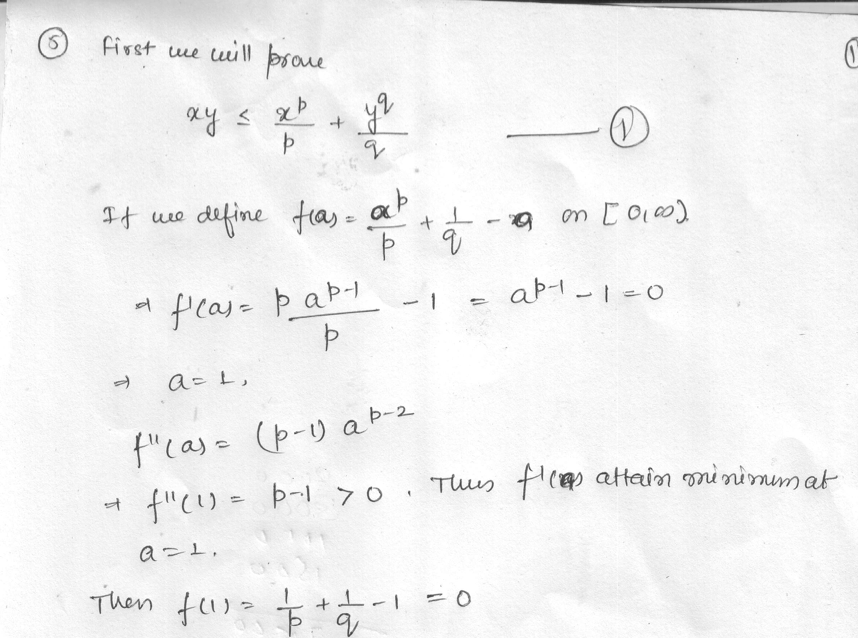 ⑤ First we will prove
xy ≤ x^p/p + y^q/q ——— ①
If we define f(a) = a^p/p + 1/q - a on [0,∞).
⇒ f'(a) = p a^{p-1}/p - 1 = a^{p-1} - 1 = 0
⇒ a = 1,
f''(a) = (p-1) a^{p-2}
⇒ f''(1) = p-1 > 0. Thus f'(a) attain minimum at
a = 1.
Then f(1) = 1/p + 1/q - 1 = 0